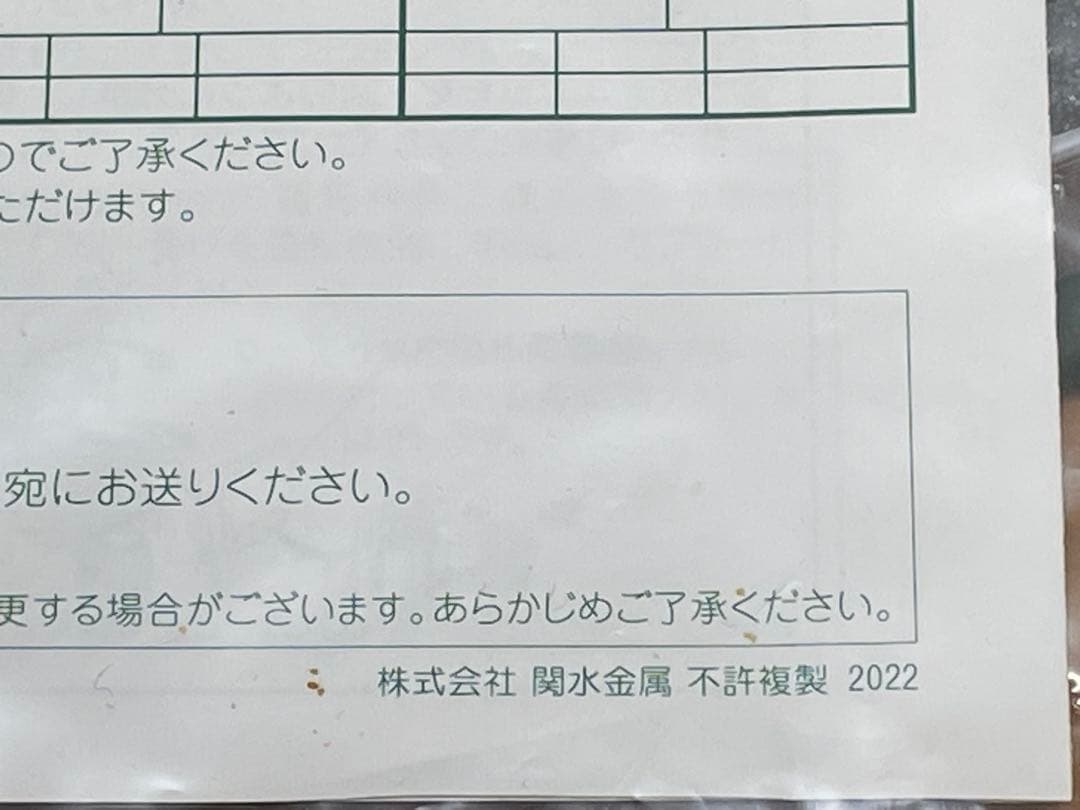 のでご了承ください。
ただけます。
宛にお送りください。
更する場合がございます。あらかじめご了承ください。
株式会社 関水金属 不許複製 2022